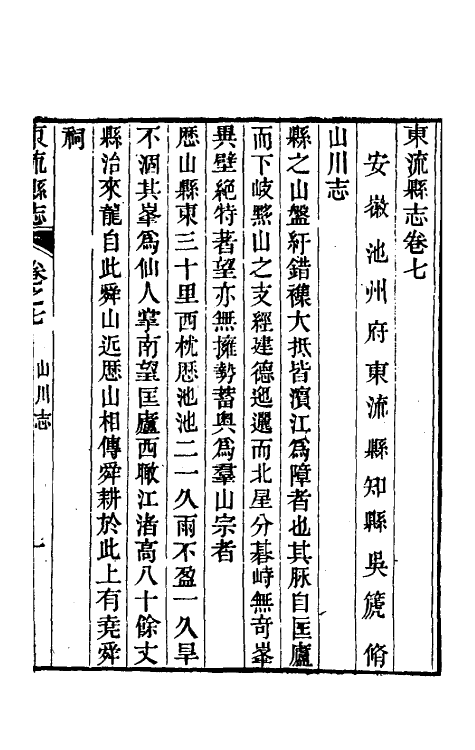 東流縣志卷七
安徽池州府東流縣知縣吳篪脩
山川志
縣之山盤紆錯襍大抵皆濱江爲障者也其脈自匡廬
而下岐黟山之支經建德迤邐而北星分碁峙無奇峯
異壁絕特著望亦無擁勢蓄輿爲羣山宗者
歷山縣東三十里西枕歷池池二一久雨不盈一久旱
不涸其峯爲仙人掌南望匡廬西瞰江渚高八十餘丈
縣治來龍自此舜山近歷山相傳舜耕於此上有堯舜
祠
東流縣志
卷之七
山川志
一